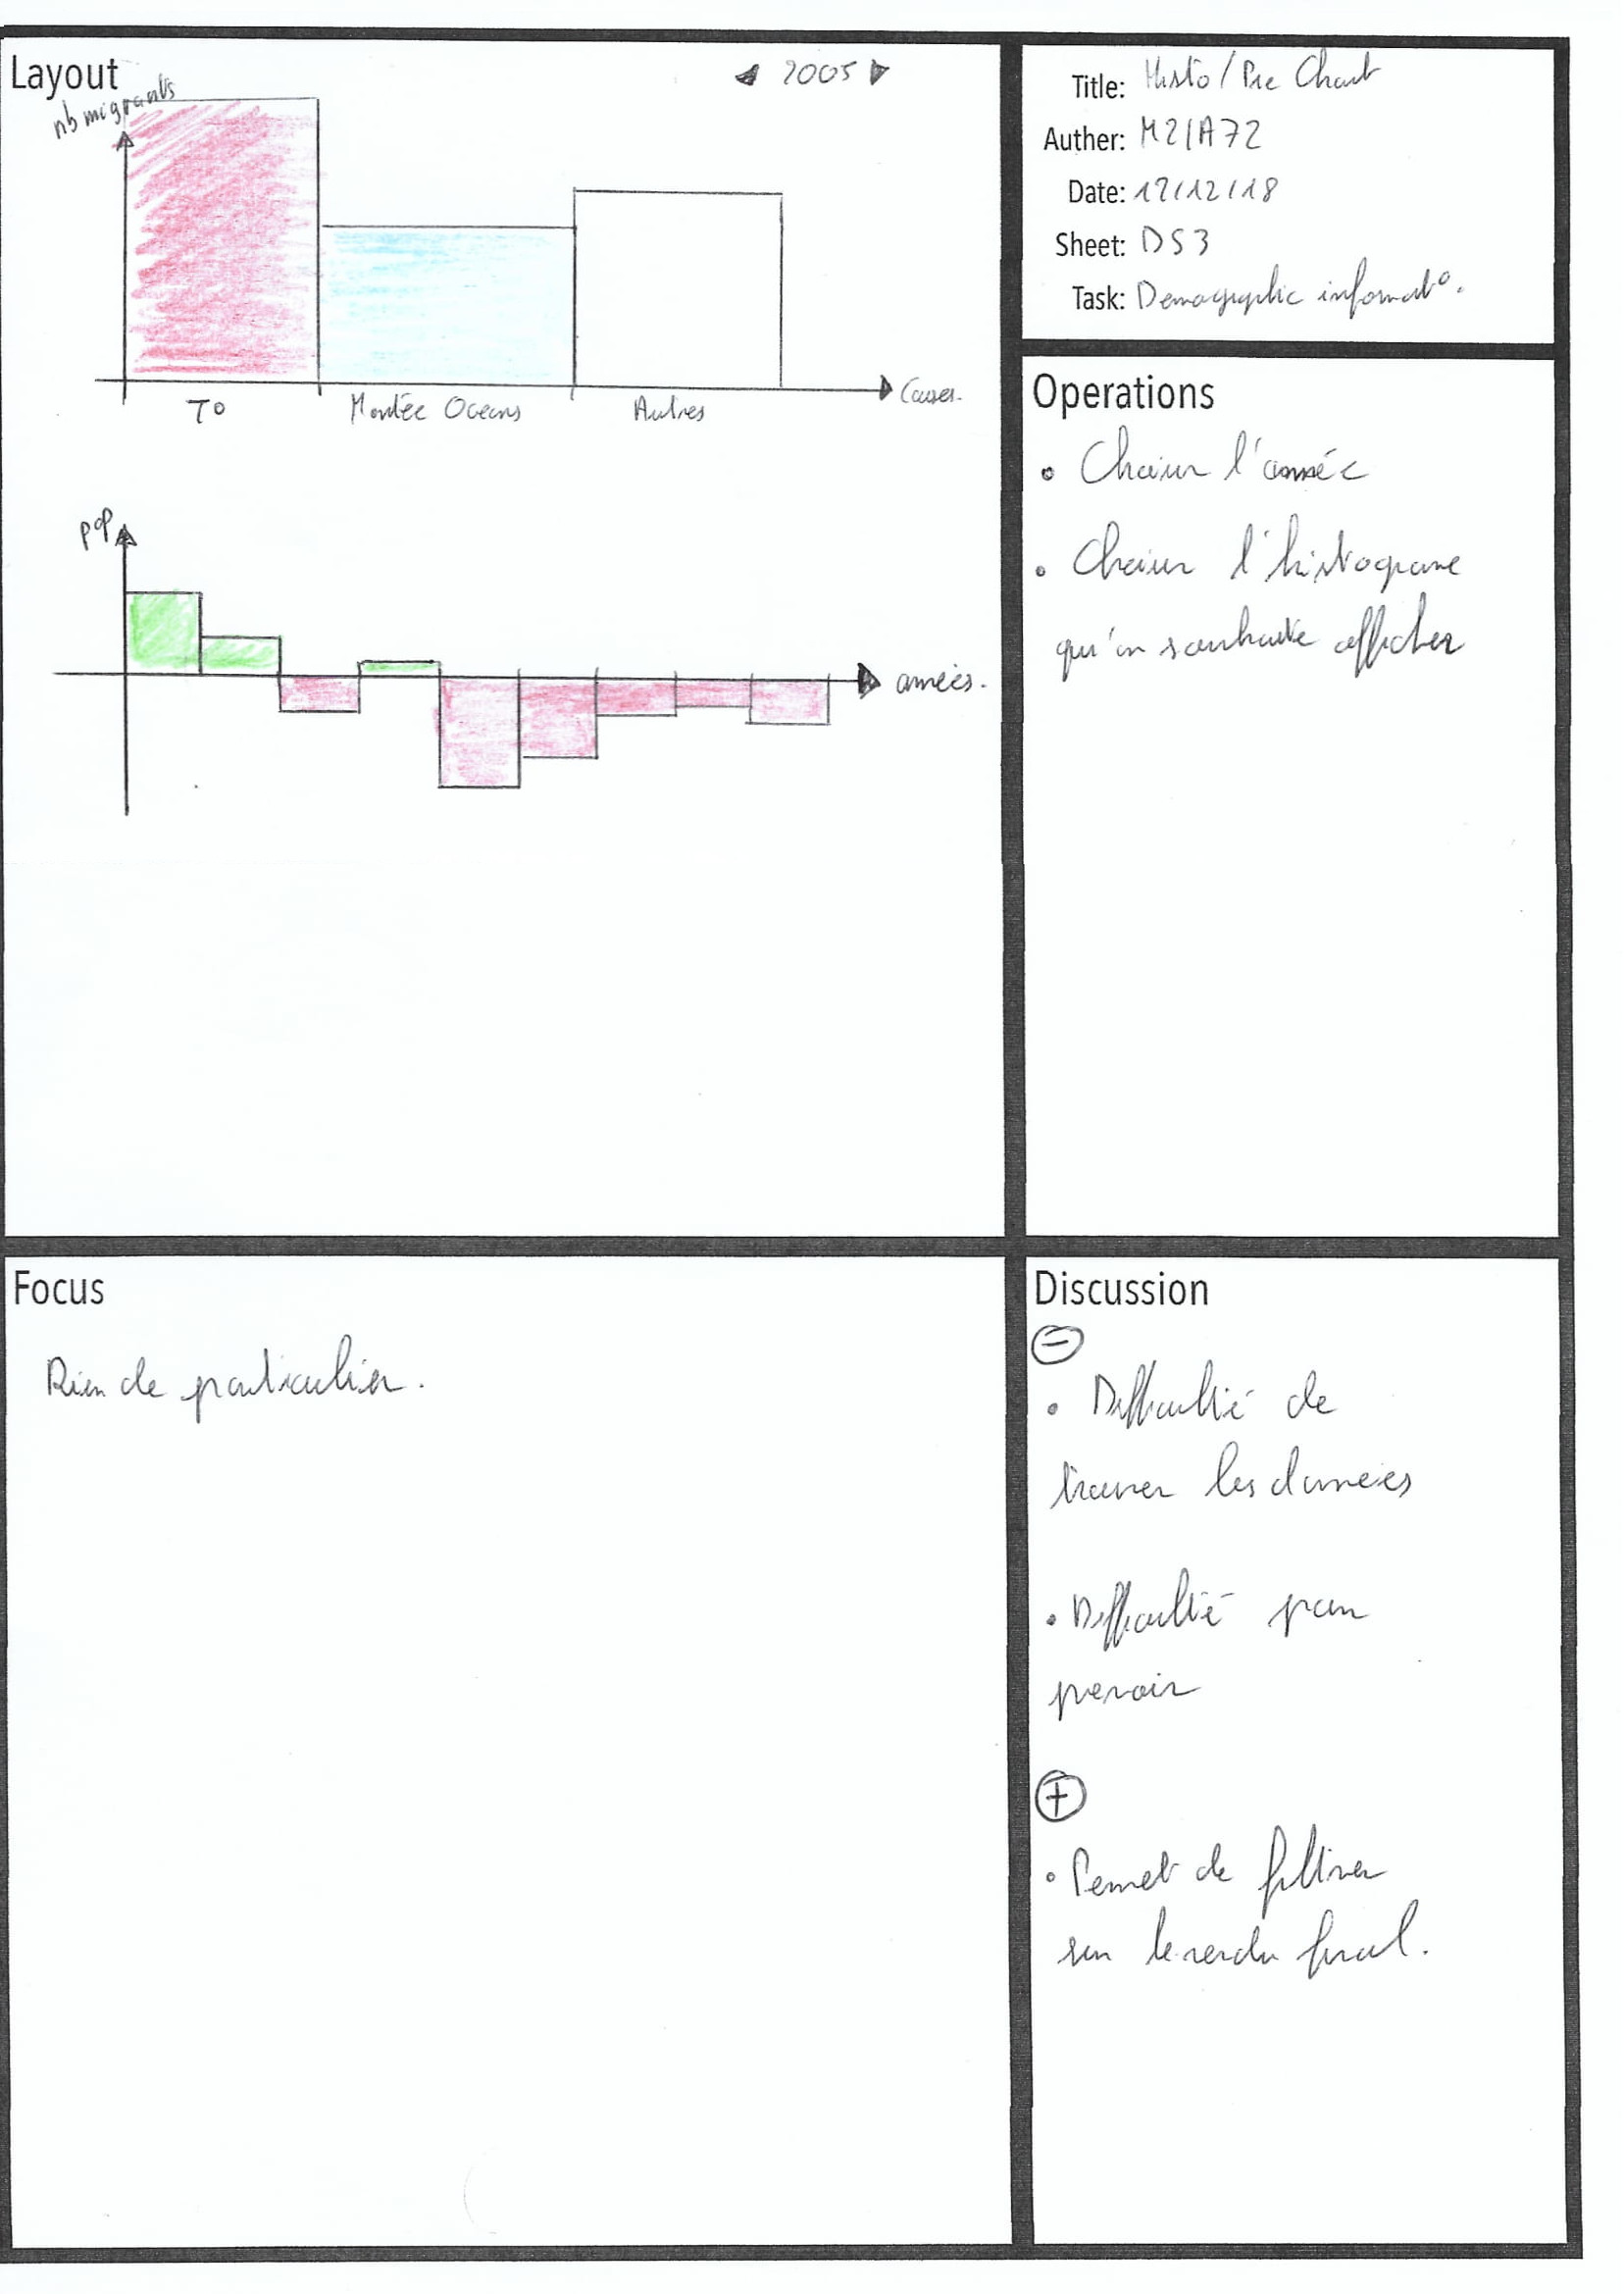 Layout
nb migrants
◀ 2005 ▶
T°
Montée Oceans
Autres
Causes.
pop
années.
Title: Histo/Pie Chart
Auther: M2IA72
Date: 17/12/18
Sheet: DS3
Task: Demographic informat°.
Operations
• Choisir l'année
• Choisir l'histograme
qu'on souhaite afficher
Focus
Rien de particulier.
Discussion
-
• Difficulté de
trouver les données
• Difficulté pour
prevoir
+
• Permet de filtrer
sur le rendu final.